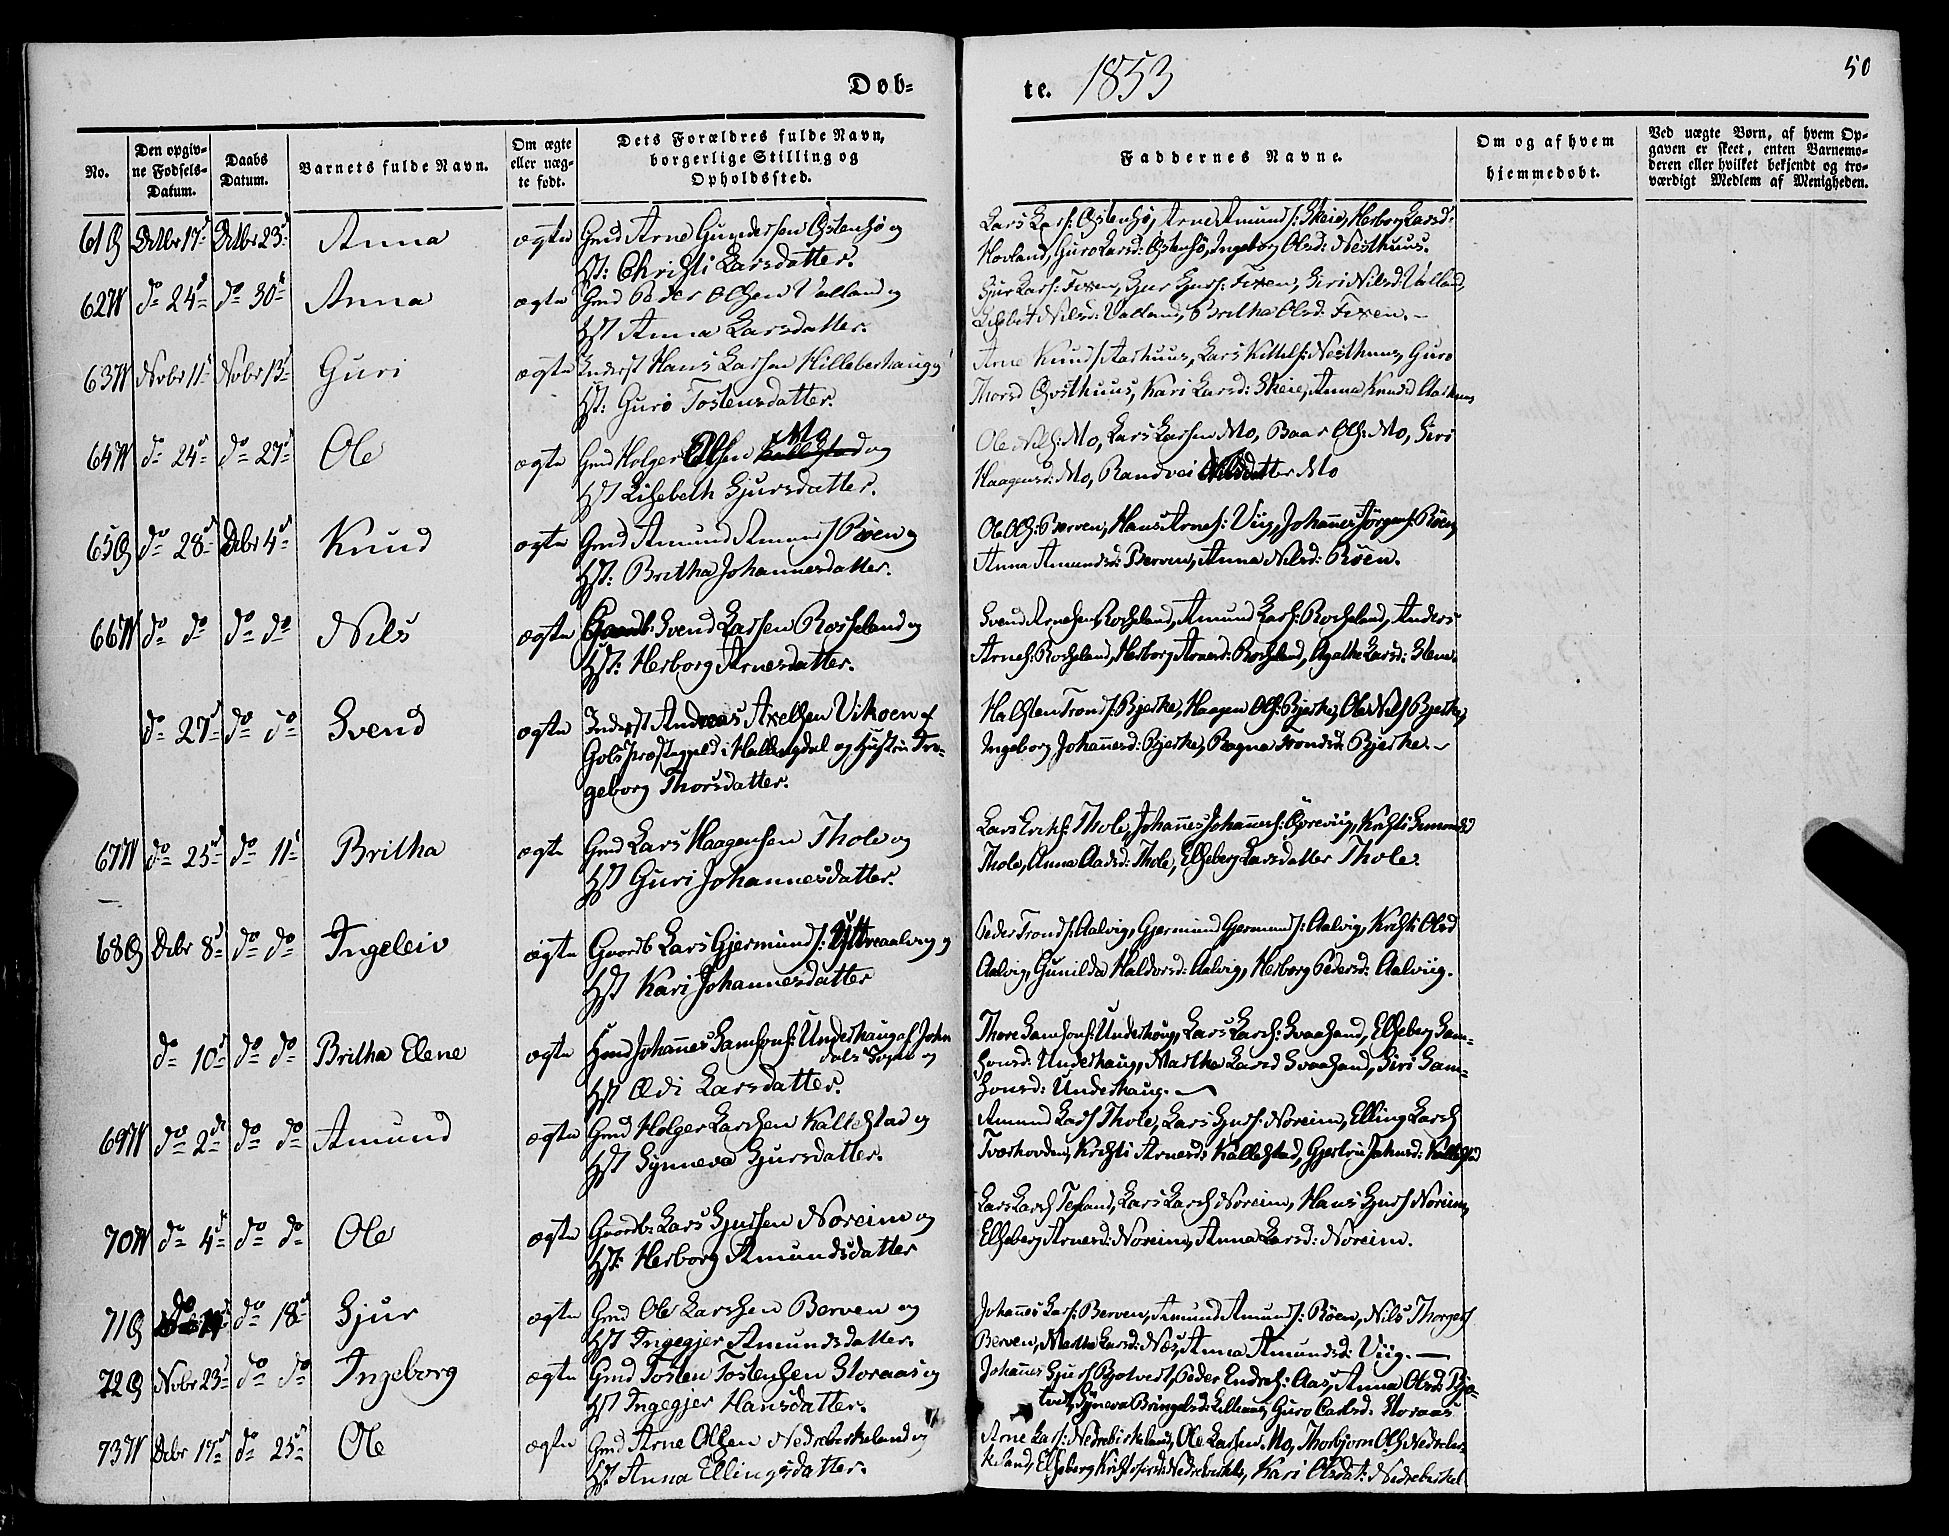 Døb-
te. 1853
50
No.
Den opgiv-
ne Fødsels-
Datum.
Daabs
Datum.
Barnets fulde Navn.
Om ægte
eller uæg-
te født.
Dets Forældres fulde Navn,
borgerlige Stilling og
Opholdssted.
Faddernes Navne.
Om og af hvem
hjemmedøbt.
Ved uægte Børn, af hvem Op-
gaven er skeet, enten Barnemo-
deren eller hvilket bekjendt og tro-
værdigt Medlem af Menigheden.
61 Octbr 17 Octbr 23 Anna ægte Gmd Arne Gundersen Østensø og
Hst: Christi Larsdatter.
Lars Lars: Østensø, Arne Amunds: Skeie, Herborg Larsd:
Hovland, Guro Larsd: Østensø, Ingeborg Olsd: Nesthuus.
62 do 24 do 30 Anna ægte Gmd Peder Olsen Valland og
Hst Anna Larsdatter.
Sjur Lars: Fixen, Sjur Sjurs: Fixen, Siri Nilsd: Valland,
Lisbet Nilsd: Valland, Britha Olsd: Fixen.
63 Nvbr 11 Nvbr 13 Guri ægte Inderst Hans Larsen Hilleberhaug og
Hst: Guro Tostensdatter.
Arne Knuds: Aarhuus, Lars Kittels: Nesthuus, Guro
Thorsd Østhuus, Kari Larsd: Skeie, Anna Knudsd Aarhuus
64 do 24 do 27 Ole ægte Gmd Holger Olsen Mo og
Hst Lisebeth Sjursdatter.
Ole Nils: Mo, Lars Larsen Mo, Baar Ols: Mo, Siri
Haagensd: Mo, Randvei Nilsdatter Mo
65 do 28 Debr 4 Knud ægte Gmd Amund Amunds: Røen og
Hst: Britha Johannesdatter.
Ole Ols: Berven, Hans Arnes: Viig, Johannes Jørgens: Røen,
Anna Amundsd: Berven, Anna Nilsd: Røen.
66 do do do do Nils ægte Gaardb: Svend Larsen Rosseland og
Hst: Herborg Arnesdatter.
Svend Arnesen Rosseland, Amund Lars: Rosseland, Anders
Arnes: Rosseland, Herborg Arnesd: Rosseland, Agatha Larsd: Steine.
do 27 do do Svend ægte Inderst Andreas Axelsen Vikoen af
Gols Præstegjeld i Hallingdal og Hustru In-
geborg Thorsdatter.
Halsten Tronds: Bjerke, Haagen Ols: Bjerke, Ole Nils Bjerke,
Ingeborg Johannesd: Bjerke, Ragna Trondsd: Bjerke.
67 do 25 do 11 Britha ægte Gmd Lars Haagensen Thole og
Hst Guri Johannesdatter.
Lars Eriks: Thole, Johannes Johannes: Øpreviig, Kristi Simonsd
Thole, Anna Aadsd: Thole, Elseberg Larsdatter Thole.
68 Debr 8 do do Ingeleiv ægte Gaardb Lars Gjermunds: Yttreaalvig og
Hst Kari Johannesdatter
Peder Tronds: Aalvig, Gjermund Gjermunds: Aalvig, Kristi Olsd
Aalvig, Gunilda Haldorsd: Aalvig, Herborg Pedersd: Aalviig.
do 10 do do Britha Elene ægte Hmd Johannes Samsons: Underhaug af Jon-
dals Sogn og
Hst Ædi Larsdatter.
Thore Samsons: Underhaug, Lars Lars: Svaasand, Elseberg Sam-
sonsd: Underhaug, Martha Larsd Svaasand, Siri Sam-
sonsd: Underhaug.
69 do 2 do do Amund ægte Gmd Holger Larssen Kallestad og
Hst Synneva Sjursdatter.
Amund Lars Thole, Lars Sjurs: Noreim, Elling Lars
Tværhovden, Kristi Arnesd: Kallestad, Gjertru Johnsd: Kallestad
70 do 4 do do Ole ægte Gaardb: Lars Sjursen Noreim og
Hst: Herborg Amundsdatter
Lars Lars Tegland, Lars Lars Noreim, Hans Sjurs Noreim,
Elseberg Arnesd: Noreim, Anna Larsd: Noreim.
71 do do 18 Sjur ægte Gmd Ole Larssen Berven og
Hst Ingegjer Amundsdatter.
Johannes Lars: Berven, Amund Amunds: Røen, Nils Thorgers
Berven, Martha Larsd: Næs, Anna Amundsd: Viig.
72 Nvbr 23 do do Ingeborg ægte Gmd Tosten Tostensen Storaas og
Hst Ingegjer Hansdatter.
Johannes Sjurs Bjotvedt, Peder Endres: Aas, Anna Olsd: Bjo-
tvedt, Synneva Bringelsd: Guro Larsd: Storaas
73 Debr 17 do 25 Ole ægte Gmd Arne Olsen Nedrebirkeland og
Hst Anna Ellingsdatter.
Arne Lars: Nedrebirkeland, Ole Larsen Mo, Thorbjørn Ols Nedrebir-
keland, Elseberg Nedrebirkel, Kari Olsdat: Nedrebirkel